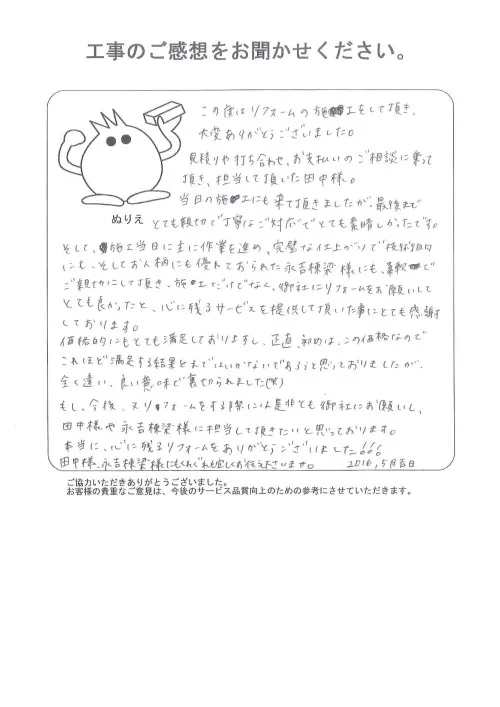 工事のご感想をお聞かせください。
この度はリフォームの施工をして頂き、
大変ありがとうございました。
見積りや打ち合わせ、お支払いのご相談に乗って
頂き、担当して頂いた田中様。
当日の施工にも来て頂きましたが、最後まで
ぬりえ
とても親切で丁寧なご対応でとても素晴しかったです。
そして、施工当日に主に作業を進め、完璧な仕上がりで技術的
にも、そしてお人柄にも優れておられた永吉棟梁様にも、
ご親切にして頂き、施工だけでなく、御社にリフォームをお願いして
とても良かったと、心に残るサービスを提供して頂いた事にとても感謝
しております。
価格的にもとても満足しておりますし、正直、初めは、この価格なので
これほど満足する結果とまではいかないであろうと思っておりましたが、
全く違い、良い意味で裏切られました(笑)
もし、今後、又リフォームをする際には是非とも御社にお願いし、
田中様や永吉棟梁様に担当して頂きたいと思っております。
本当に、心に残るリフォームをありがとうございました!!!
田中様、永吉棟梁様にもくれぐれも宜しくお伝え下さいませ。 2016,5月吉日
ご協力いただきありがとうございました。
お客様の貴重なご意見は、今後のサービス品質向上のための参考にさせていただきます。